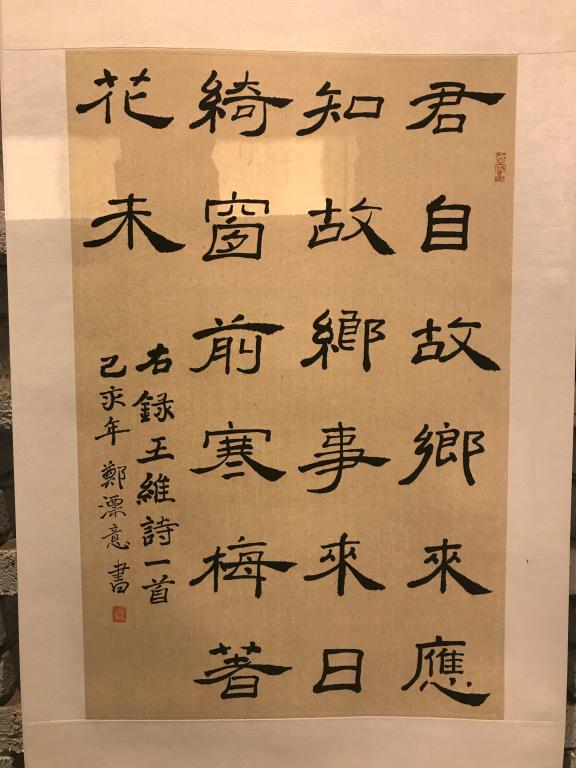 君自故鄉來應
知故鄉事來日
綺窗前寒梅著
花未
右錄王維詩一首
己亥年鄭漂意書